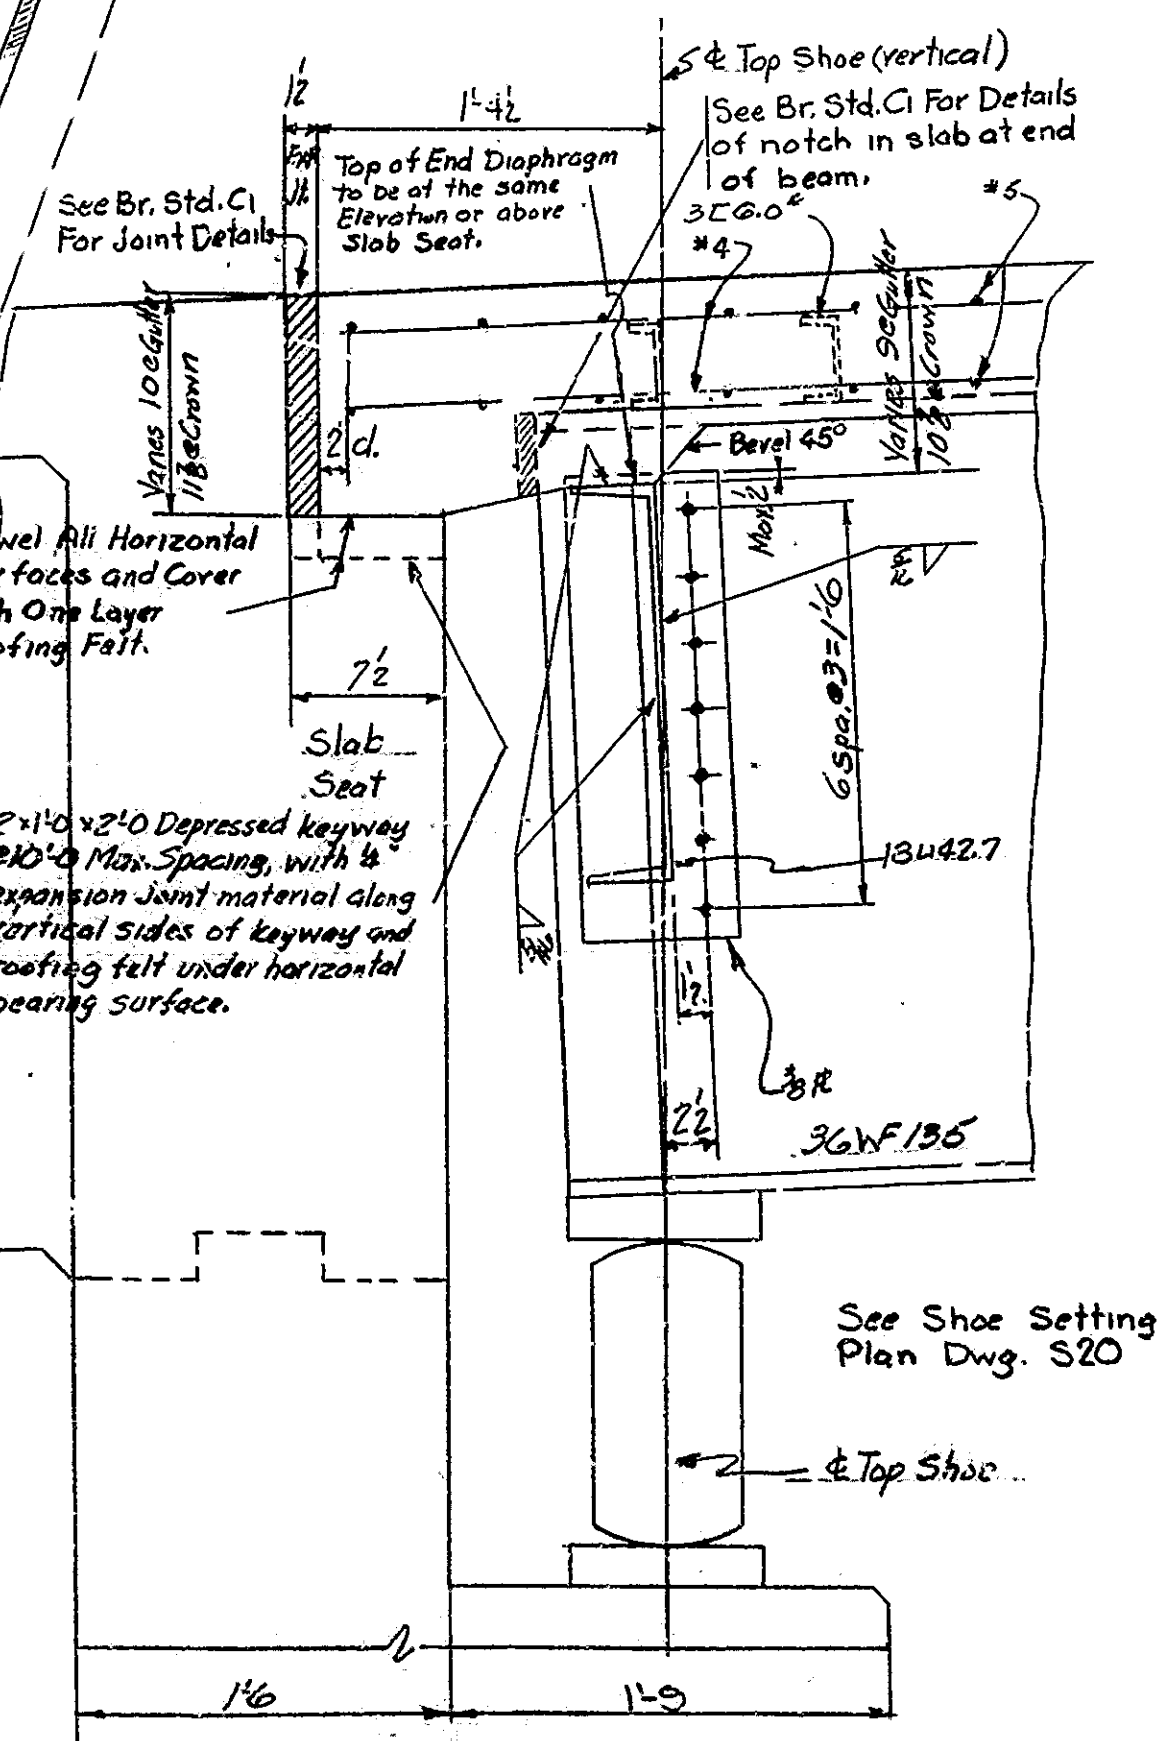 ℄ Top Shoe (vertical)
1½
1'-4½
See Br. Std. C1 For Details
of notch in slab at end
of beam.
Exp.
Jt.
Top of End Diaphragm
to be at the same
Elevation or above
Slab Seat.
See Br. Std. C1
For Joint Details
3[6.0#
#4
#5
Varies 10@Gutter
11⅞@Crown
Varies 9@Gutter
@Crown
2"cl.
Bevel 45°
Max. ½
All Horizontal
faces and Cover
One Layer
Felt.
6 spa.@3=1'-6
7½
Slab
Seat
2x1'-0x2'-0 Depressed keyway
@10'-0 Max. Spacing, with ¼"
expansion Joint material along
vertical sides of keyway and
roofing felt under horizontal
bearing surface.
13⊔42.7
1½
⅜ ℄
2½
36WF135
See Shoe Setting
Plan Dwg. S20
℄ Top Shoe
1'-6
1'-9